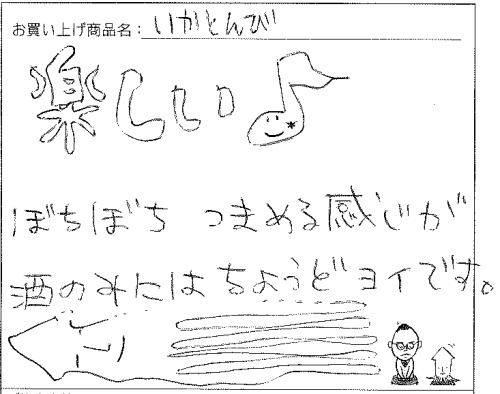 お買い上げ商品名: いかとんび
楽しい♪
ぼちぼち つまめる感じが
酒のみにはちょうどヨイです。